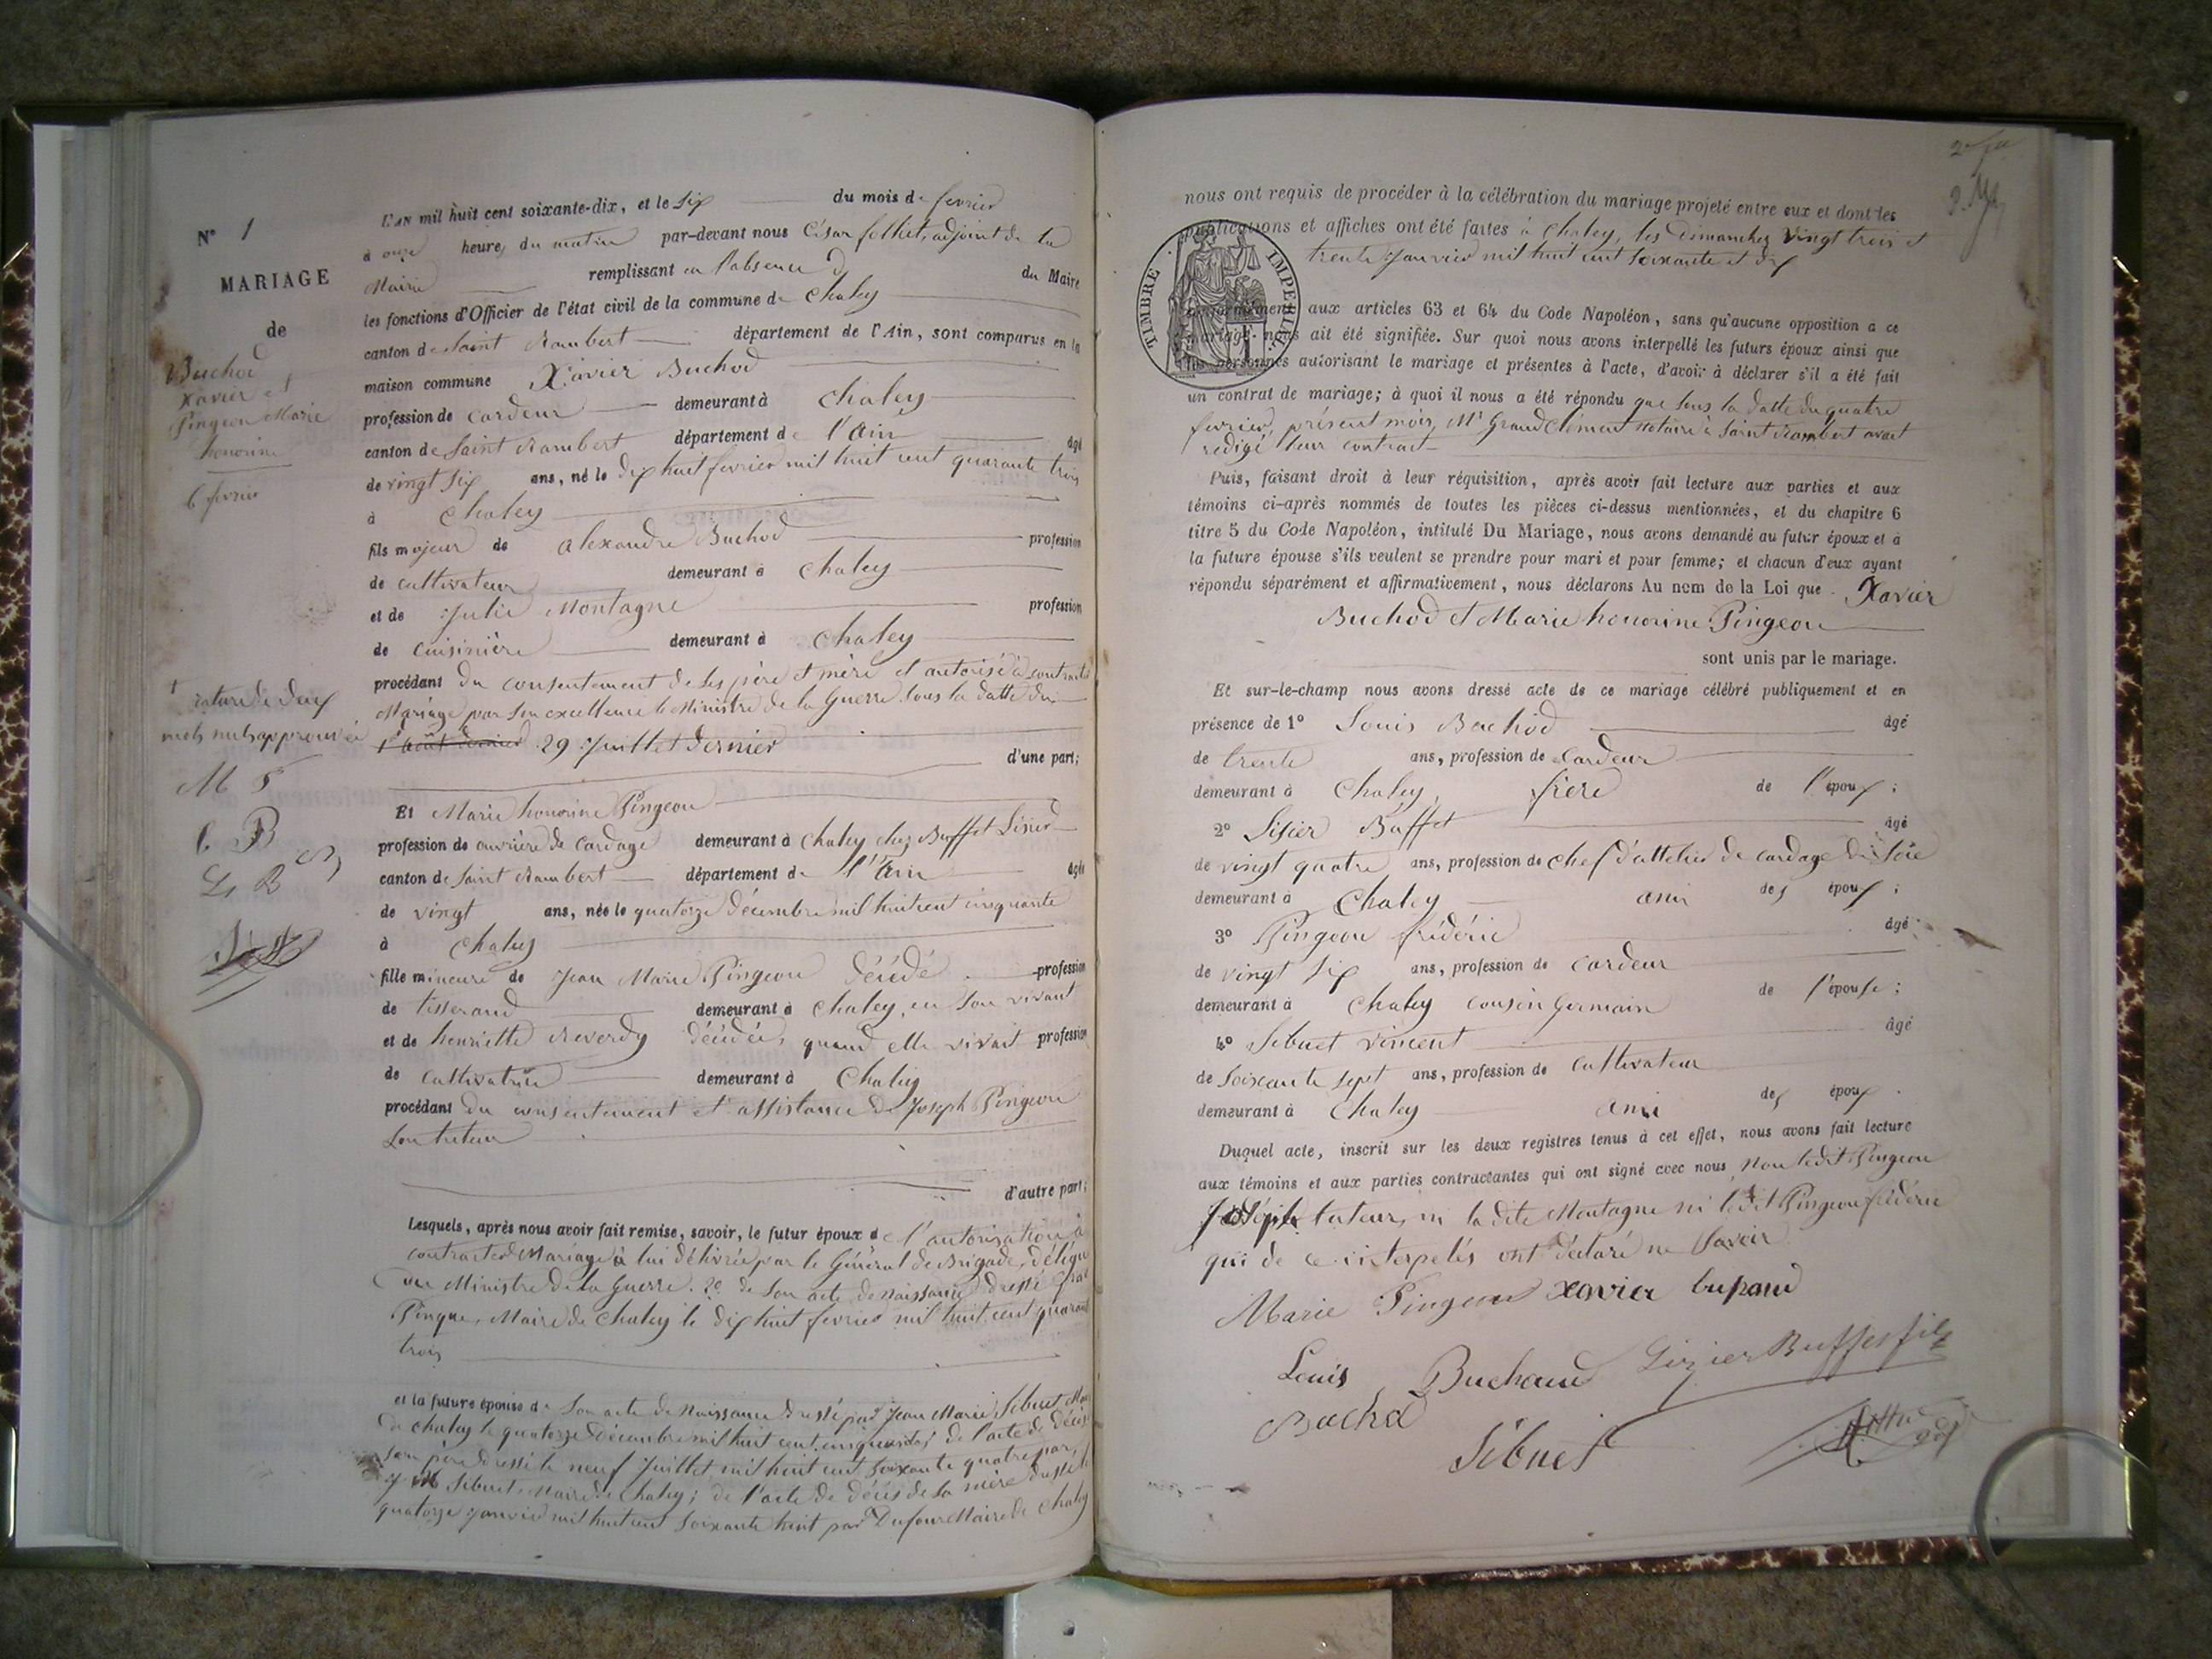 N° 1
MARIAGE
de
Buchod
Xavier et
Pingeon Marie
honorine
6 fevrier
L'AN mil huit cent soixante-dix, et le six du mois de fevrier
à onze heures du matin par-devant nous César follict, adjoint de la
Mairie remplissant en l'absence d du Maire
les fonctions d'Officier de l'état civil de la commune de Chaley
canton de Saint Rambert département de l'Ain, sont comparus en la
maison commune Xavier Buchod
profession de cardeur demeurant à Chaley
canton de Saint Rambert département de l'Ain âgé
de vingt six ans, né le dix huit fevrier mil huit cent quarante trois
à Chaley
fils majeur de alexandre Buchod profession
de cultivateur demeurant à Chaley
et de Julie Montagne profession
de cuisinière demeurant à Chaley
procédant du consentement de ses père et mère et autorisé à contracter
Mariage par son excellence le Ministre de la Guerre sous la datte du
1er août dernier 29 Juillet dernier
d'une part;
rature de deux
mots nuls approuvée
M P
L B
Et Marie honorine Pingeon
profession de ouvrière de cardage demeurant à Chaley chez Buffet Lisier
canton de Saint Rambert département de l'Ain âgée
de vingt ans, née le quatorze décembre mil huit cent cinquante
à Chaley
fille mineure de Jean Marie Pingeon décédé profession
de tisserand demeurant à Chaley, en son vivant
et de henriette Reverdy décédée, quand elle vivait profession
de cultivatrice demeurant à Chaley
procédant du consentement et assistance de Joseph Pingeon
son tuteur
d'autre part;
Lesquels, après nous avoir fait remise, savoir, le futur époux de l'autorisation à
contracter Mariage à lui délivrée par le Général de Brigade, délégué
du Ministre de la Guerre. 2° de son acte de naissance dressé par
Pingue, Maire de Chaley le dix huit fevrier mil huit cent quarante
trois
et la future épouse de son acte de Naissance dressé par Jean Marie Sibuet Maire
de Chaley le quatorze décembre mil huit cent cinquante; de l'acte de décès
son père dressé le neuf Juillet mil huit cent soixante quatre par
J M Sibuet Maire de Chaley; de l'acte de décès de sa mère dressé le
quatorze janvier mil huit cent soixante huit par Dufour Maire de Chaley
nous ont requis de procéder à la célébration du mariage projeté entre eux et dont les
publications et affiches ont été faites à Chaley, les dimanches vingt trois et
trente Janvier mil huit cent soixante et dix
TIMBRE IMPERIAL
conformément aux articles 63 et 64 du Code Napoléon, sans qu'aucune opposition à ce
mariage nous ait été signifiée. Sur quoi nous avons interpellé les futurs époux ainsi que
les personnes autorisant le mariage et présentes à l'acte, d'avoir à déclarer s'il a été fait
un contrat de mariage; à quoi il nous a été répondu que sous la datte du quatre
fevrier, présent mois, Mr Grandclément Notaire à Saint Rambert avait
redigé leur contract
Puis, faisant droit à leur réquisition, après avoir fait lecture aux parties et aux
témoins ci-après nommés de toutes les pièces ci-dessus mentionnées, et du chapitre 6
titre 5 du Code Napoléon, intitulé Du Mariage, nous avons demandé au futur époux et à
la future épouse s'ils veulent se prendre pour mari et pour femme; et chacun d'eux ayant
répondu séparément et affirmativement, nous déclarons Au nom de la Loi que Xavier
Buchod et Marie honorine Pingeon
sont unis par le mariage.
Et sur-le-champ nous avons dressé acte de ce mariage célébré publiquement et en
présence de 1° Louis Buchod âgé
de trente ans, profession de cardeur
demeurant à Chaley, frère de l'époux;
2° Lisier Buffet âgé
de vingt quatre ans, profession de chef d'attelier de cardage de soie
demeurant à Chaley ami des époux;
3° Pingeon frédéric âgé
de vingt six ans, profession de cardeur
demeurant à Chaley cousin Germain de l'épouse;
4° Sibuet vincent âgé
de soixante sept ans, profession de cultivateur
demeurant à Chaley ami des époux.
Duquel acte, inscrit sur les deux registres tenus à cet effet, nous avons fait lecture
aux témoins et aux parties contractantes qui ont signé avec nous Non ledit Pingeon
Joseph tuteur, ni la dite Montagne ni ledit Pingeon frédéric
qui de ce interpelés ont déclaré ne savoir
Marie Pingeon xavier
Louis Buchaud Lizier Buffet fils
Buchod
Sibuet